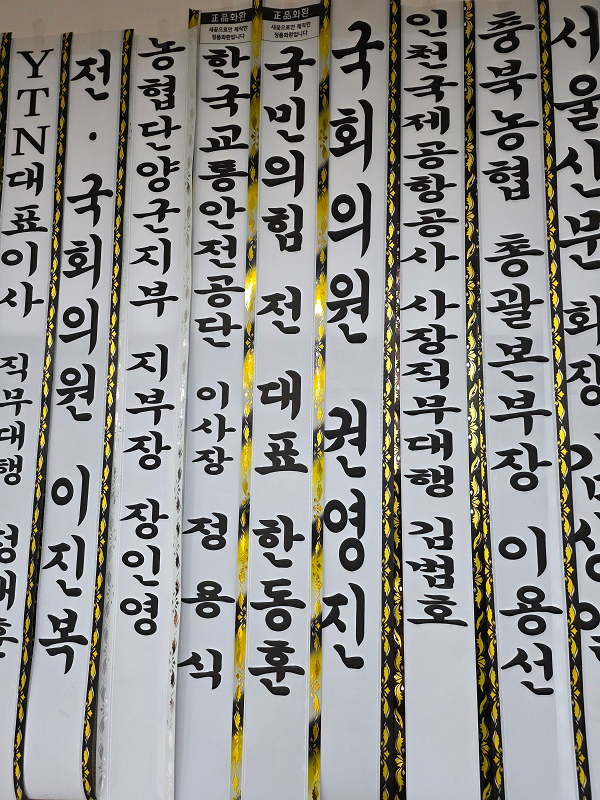 YTN대표이사 직무대행
전·국회의원 이진복
농협단양군지부 지부장 장인영
正品화환
새꽃으로만 제작한
정품화환입니다
한국교통안전공단 이사장 정용식
正品화환
새꽃으로만 제작한
정품화환입니다
국민의힘 전 대표 한동훈
국회의원 권영진
인천국제공항공사 사장직무대행 김범호
충북농협 총괄본부장 이용선
서울신문 회장